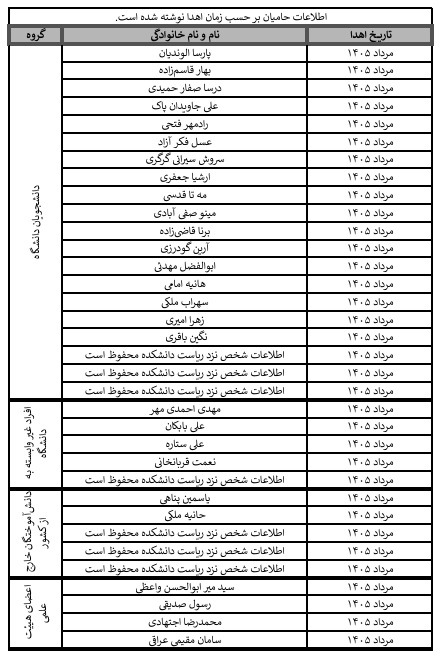 اطلاعات حامیان بر حسب زمان اهدا نوشته شده است.
تاریخ اهدا نام و نام خانوادگی گروه
دانشجویان دانشگاه
مرداد ۱۴۰۵ پارسا الوندیان
مرداد ۱۴۰۵ بهار قاسم‌زاده
مرداد ۱۴۰۵ درسا صفار حمیدی
مرداد ۱۴۰۵ علی جاویدان پاک
مرداد ۱۴۰۵ رادمهر فتحی
مرداد ۱۴۰۵ عسل فکر آزاد
مرداد ۱۴۰۵ سروش سیرانی گرگری
مرداد ۱۴۰۵ ارشیا جعفری
مرداد ۱۴۰۵ مه تا قدسی
مرداد ۱۴۰۵ مینو صفی آبادی
مرداد ۱۴۰۵ برنا قاضی‌زاده
مرداد ۱۴۰۵ آرین گودرزی
مرداد ۱۴۰۵ ابوالفضل مهدئی
مرداد ۱۴۰۵ هانیه امامی
مرداد ۱۴۰۵ سهراب ملکی
مرداد ۱۴۰۵ زهرا امیری
مرداد ۱۴۰۵ نگین باقری
مرداد ۱۴۰۵ اطلاعات شخص نزد ریاست دانشکده محفوظ است
مرداد ۱۴۰۵ اطلاعات شخص نزد ریاست دانشکده محفوظ است
مرداد ۱۴۰۵ اطلاعات شخص نزد ریاست دانشکده محفوظ است
افراد غیر وابسته به
دانشگاه
مرداد ۱۴۰۵ مهدی احمدی مهر
مرداد ۱۴۰۵ علی بابکان
مرداد ۱۴۰۵ علی ستاره
مرداد ۱۴۰۵ نعمت قربانخانی
مرداد ۱۴۰۵ اطلاعات شخص نزد ریاست دانشکده محفوظ است
دانش آموختگان خارج
از کشور
مرداد ۱۴۰۵ یاسمین پناهی
مرداد ۱۴۰۵ حانیه ملکی
مرداد ۱۴۰۵ اطلاعات شخص نزد ریاست دانشکده محفوظ است
مرداد ۱۴۰۵ اطلاعات شخص نزد ریاست دانشکده محفوظ است
مرداد ۱۴۰۵ اطلاعات شخص نزد ریاست دانشکده محفوظ است
اعضای هیئت
علمی
مرداد ۱۴۰۵ سید میر ابوالحسن واعظی
مرداد ۱۴۰۵ رسول صدیقی
مرداد ۱۴۰۵ محمدرضا اجتهادی
مرداد ۱۴۰۵ سامان مقیمی عراقی